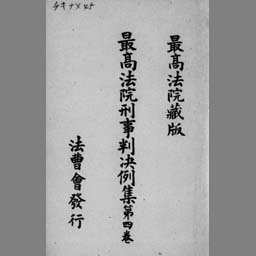 最高法院藏版
最高法院刑事判決例集第四卷
法曹會發行